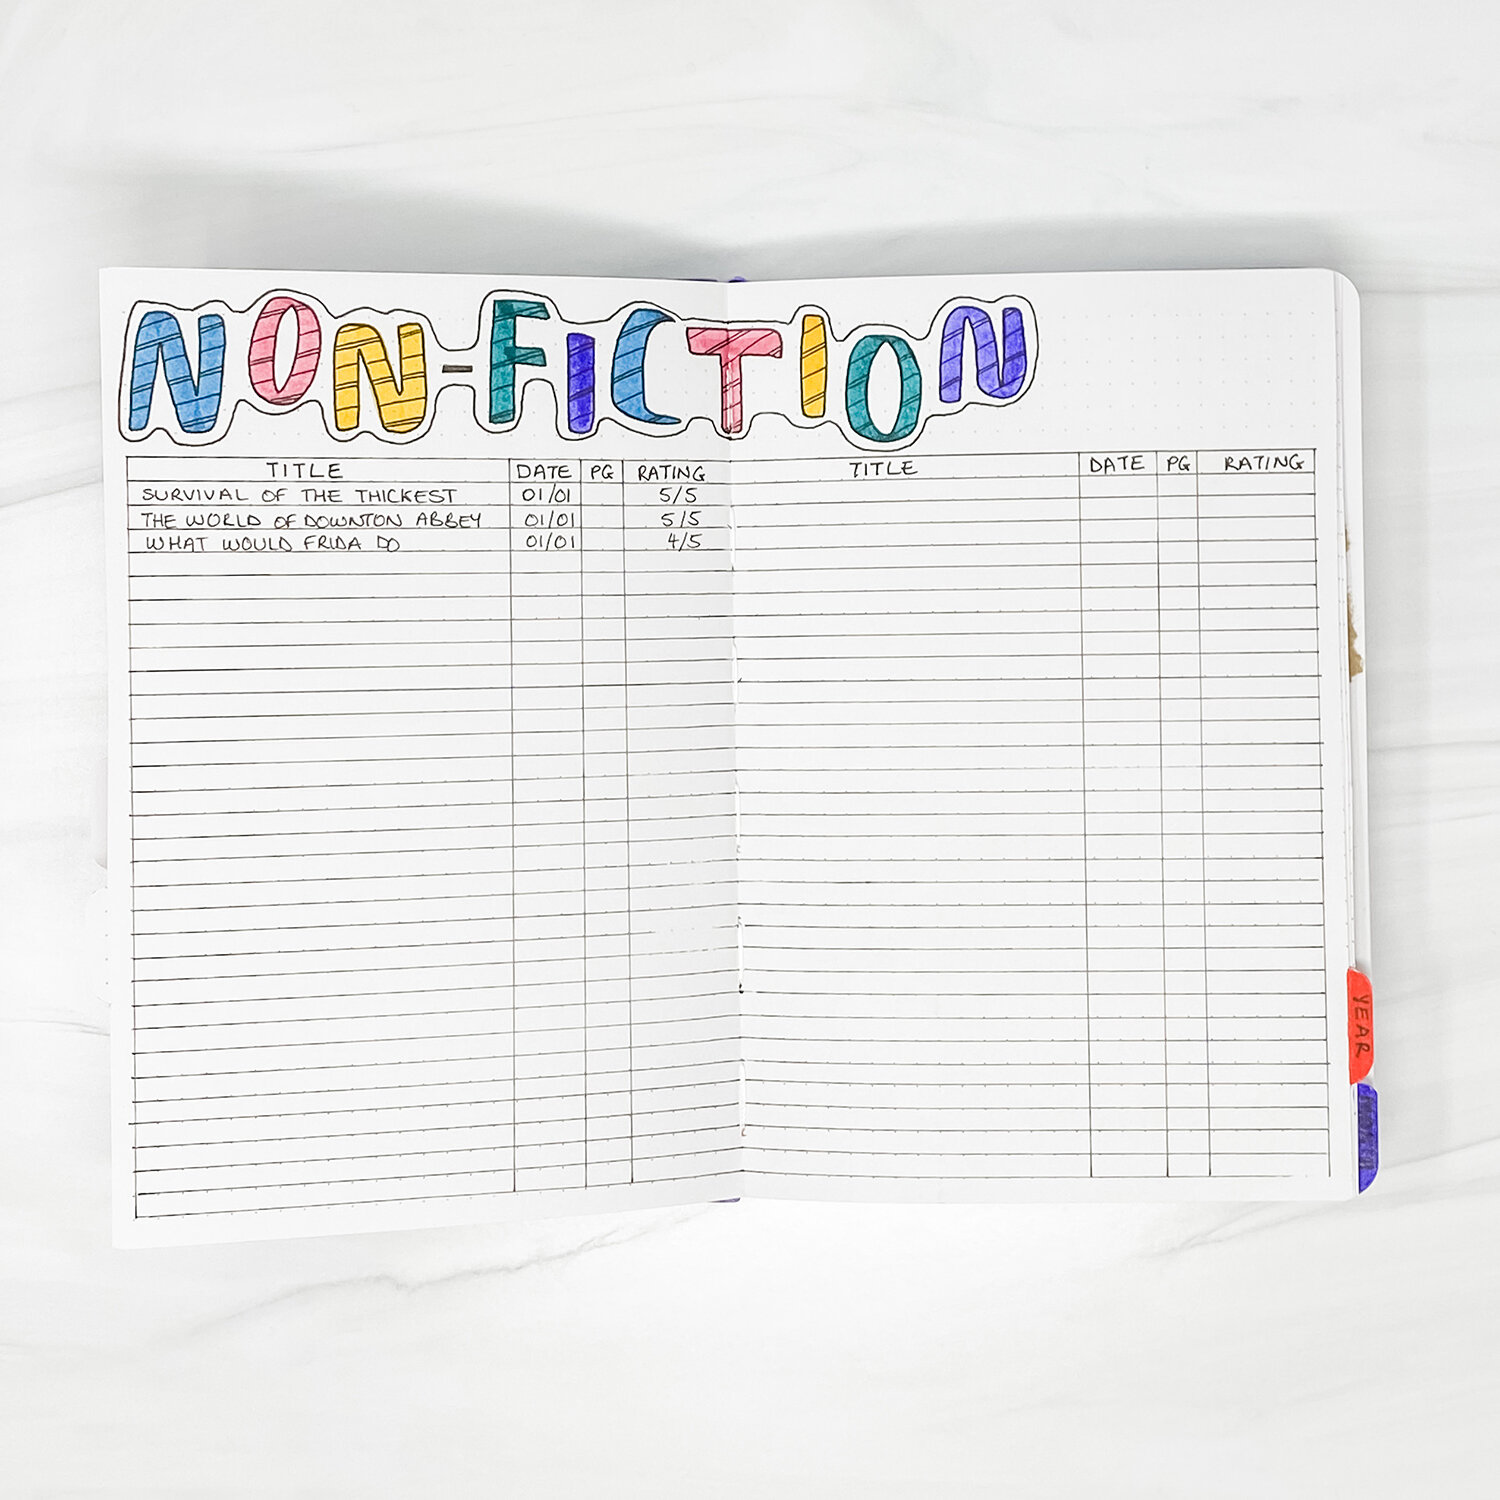 NON-FICTION
TITLE DATE PG RATING TITLE DATE PG RATING
SURVIVAL OF THE THICKEST 01/01 5/5
THE WORLD OF DOWNTON ABBEY 01/01 5/5
WHAT WOULD FRIDA DO 01/01 4/5
YEAR